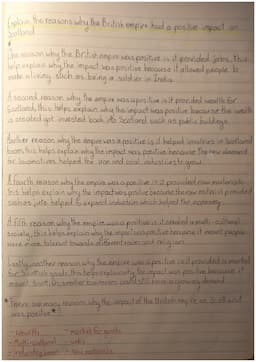 Explain the reasons why the British empire had a positive impact on Scotland
One reason why the British empire was positive is it provided jobs. This
help explain why the impact was positive because it allowed people to
make a living such as being a soldier in India
A second reason why the empire was a positive is it provided wealth for
Scotland, this helps explain why the impact was positive because the wealth
is created got invested back into Scotland such as public buildings
Another reason why the empire was a positive is it helped industries in Scotland
boom, this helps explain why the impact was positive because the new demand
for locomotives helped the iron and coal industries to grow.
A fourth reason why the empire was a positive is it provided raw materials
this helps explain why the impact was positive because the raw materials provided
such as jute helped to expand industries which helped the economy
A fifth reason why the empire was a positive is it created a multi-cultural
society, this helps explain why the impact was positive because it meant people
were more tolerant towards different races and religions
Lastly another reason why the empire was a positive is it provided a market
for Scottish goods this helps explain why the impact was positive because it
meant Scottish businesses could still have a
There are many reasons why the impact of the British empire on Scotland
was positive
- Wealth - market for goods
- Multi-cultural - jobs
- industry boom - raw materials